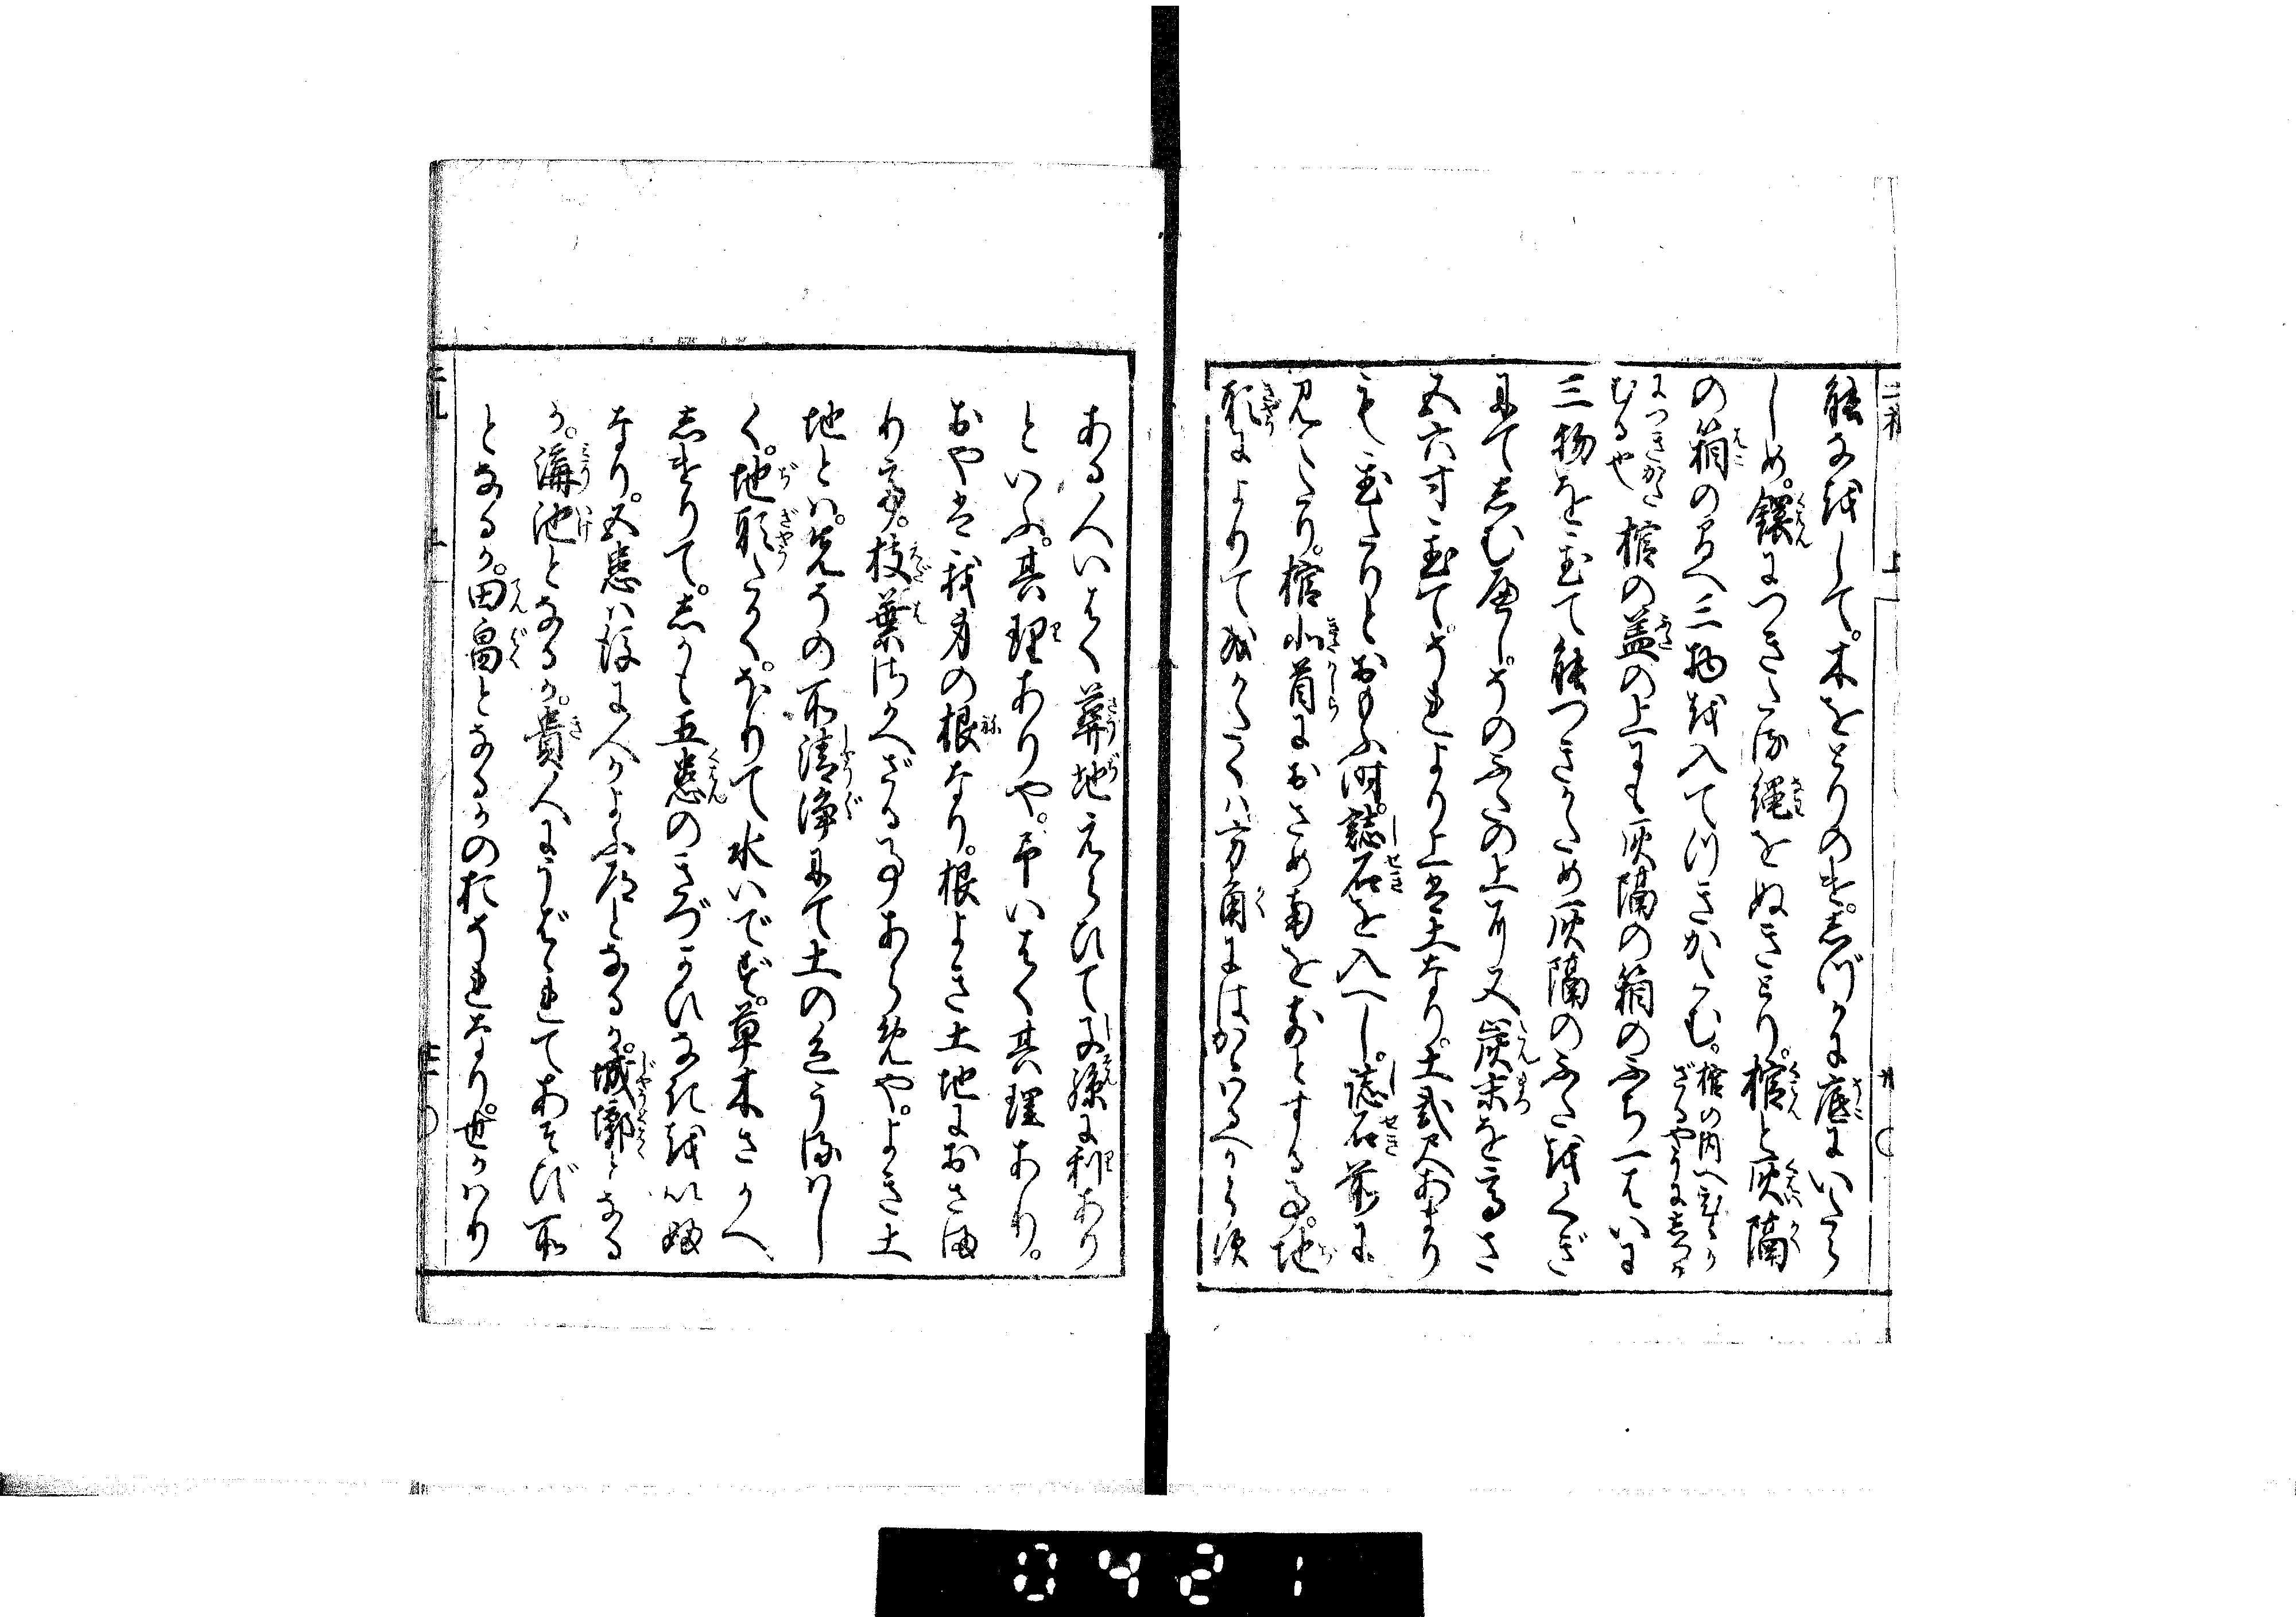 能なをして。木をとりのけ。志づかに底にいたら
しめ。鐶につきたる縄をぬきとり。棺と灰隔
の箱の間へ三物を入てつきかたむ。棺の内へひゞか
ざるやうに志づか
につきかた
むるや棺の蓋の上にも灰隔の箱のふち一はいに
三物を置て能つきかため灰隔のふたをくぎ
にて志むべし。そのふたの上に又炭末を高さ
五六寸置て。それより上は土なり。土弐尺あまり
も置たりとおもふ時。誌石を入べし。誌石前に
見へたり。棺北首におさめ南を前とする事。地
形によりて成がたくハ方角にはかゝハるべからず
ある人いはく葬地えらびて子孫に利あり
といふ。其理ありや。予いはく其理あり。
おやは我身の根なり。根よき土地におさま
りて。枝葉さかへざる事あらめや。よき土
地とハ。先その所清浄にて土の色うるハし
く。地形たかく。ほりて水いでず。草木さかへ
志げりて。志かも五患のきづかひなきをいふ
なり。五患ハ後に人かよふ道となるか。城郭となる
か。溝池となるか。貴人にうばゝれてあそび所
となるか。田畠となるかのおそれなり。世かハり
0421